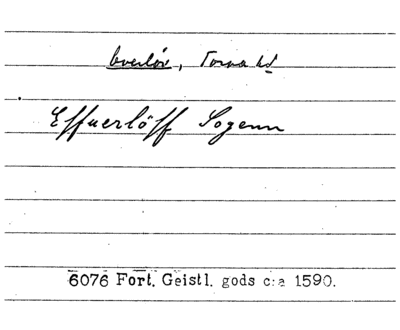 Everlöv, Torna hd
Effuerlöff Sogenn
6076 Fort. Geistl. gods c:a 1590.